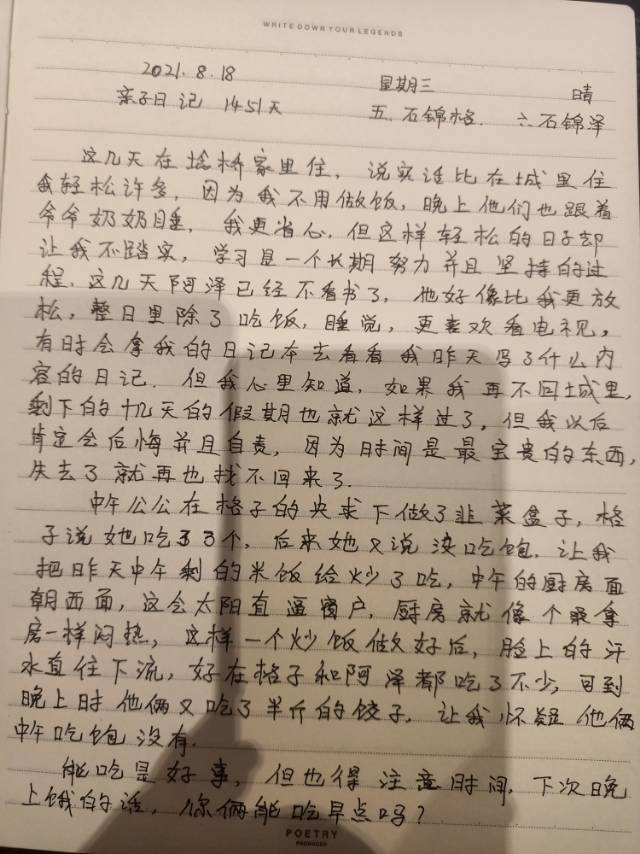 WRITE DOWN YOUR LEGENDS
2021.8.18 星期三 晴
亲子日记 1451天 五.石锦格. 六石锦泽
这几天在埝桥家里住，说实话比在城里住
我轻松许多，因为我不用做饭，晚上他们也跟着
爷爷奶奶睡，我更省心，但这样轻松的日子却
让我不踏实，学习是一个长期努力并且坚持的过
程，这几天阿泽已经不看书了，他好像比我更放
松，整日里除了吃饭，睡觉，更喜欢看电视，
有时会拿我的日记本去看看我昨天写了什么内
容的日记，但我心里知道，如果我再不回城里，
剩下的十几天的假期也就这样过了，但我以后
肯定会后悔并且自责，因为时间是最宝贵的东西，
失去了就再也找不回来了.
中午公公在格子的央求下做了韭菜盒子，格
子说她吃了3个，后来她又说没吃饱，让我
把昨天中午剩的米饭给炒了吃，中午的厨房面
朝西面，这会太阳直逼窗户，厨房就像个桑拿
房一样闷热，这样一个炒饭做好后，脸上的汗
水直往下流，好在格子和阿泽都吃了不少，可到
晚上时他俩又吃了半斤的饺子，让我怀疑他俩
中午吃饱没有.
能吃是好事，但也得注意时间，下次晚
上饿的话，你俩能吃早点吗？
POETRY
PRODUCER